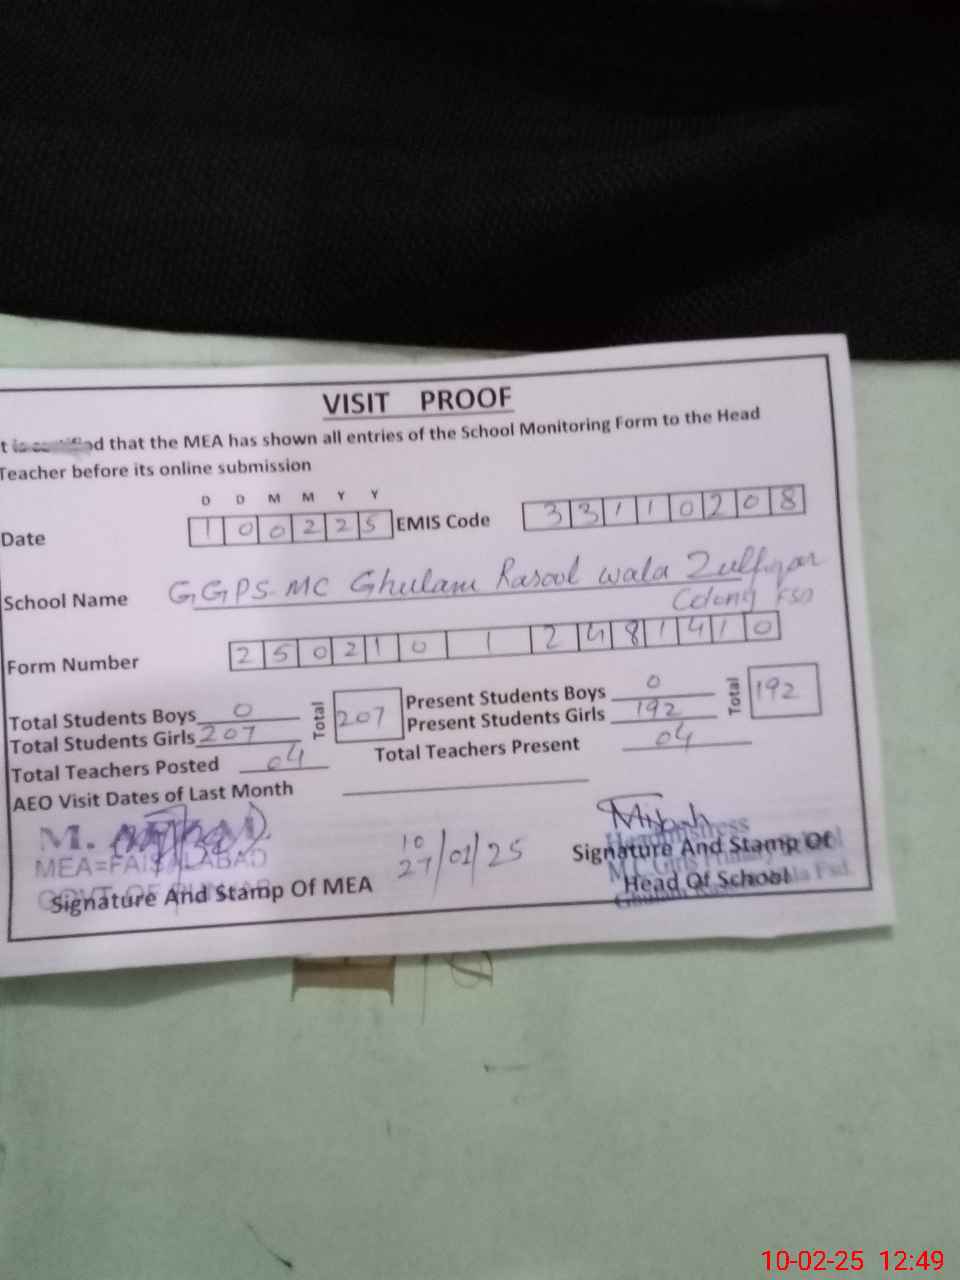 VISIT PROOF
t is certified that the MEA has shown all entries of the School Monitoring Form to the Head
Teacher before its online submission
D D M M Y Y
Date 1 0 0 2 2 5 EMIS Code 3 3 1 1 0 2 0 8
School Name GGPS MC Ghulam Rasool wala Zulfiqar
Colony FSD
Form Number 2 5 0 2 1 0 1 2 4 8 1 4 1 0
Total Students Boys 0 Total 207 Present Students Boys 0 Total 192
Total Students Girls 207 Present Students Girls 192
Total Teachers Posted 04 Total Teachers Present 04
AEO Visit Dates of Last Month
M.
MEA=FAISALABAD
10
27/01/25
Signature And Stamp Of MEA
Headmistress
Signature And Stamp Of
Head Of School
10-02-25 12:49